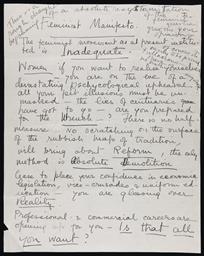 Feminist Manifesto.
The feminist movement as at present instituted is Inadequate
Women if you want to realise yourselves
you are on the eve of a
devastating psychological upheaval
all your pet illusions must be unmasked
the lies of centuries
have got to go — are you prepared
for the Wrench — ? There is no half
measure. NO scratching on the surface
of the rubbish heap of tradition,
will bring about Reform, the only
method is Absolute Demolition
Cease to place your confidence in economic
legislation, vice-crusades & uniform
education — you are glossing over
Reality.
Professional & commercial careers are
opening up for you — Is that all
you want ?